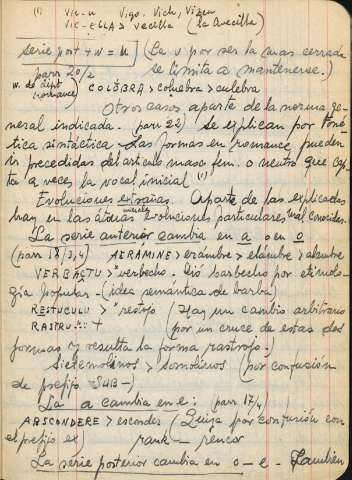 (1) VIC-U Vigo, Vich, Vizeu
VIC-ELLA > vecilla (la Avecilla)
serie post + W = u (La u por ser la mas cerrada
parr 20/2 se limita a mantenerse.)
W. de dipt romance) COLÓBRA > coluebra > culebra
Otros casos aparte de la norma ge-
neral indicada. (parr 22) se explican por foné-
tica sintáctica. Las formas en romance pueden
ir precedidas del articulo masc fem. o neutro que cap-
ta a veces la vocal inicial (1)
Evoluciones extrañas. Aparte de las explicadas
hay en las átonas muchas evoluciones particulares mal conocidas.
La serie anterior cambia en a o en o
(parr 18/3,4) AERAMINE > erambre > elambre > alambre
VERBACTU > *verbecho. Dió barbecho por etimolo-
gía popular. (idea semántica de barba)
RESTUCULU > *restojo (Hay un cambio arbitrario
RASTRU + (por un cruce de estas dos
formas y resulta la forma rastrojo.)
Sietemolinos > somolinos (por confusión
de prefijo SUB-)
La a cambia en e: (parr 17/4)
ABSCONDERE > esconder (Quiza por confusión con
el prefijo ex) rank - rencor
La serie posterior cambia en o - e. Tambien